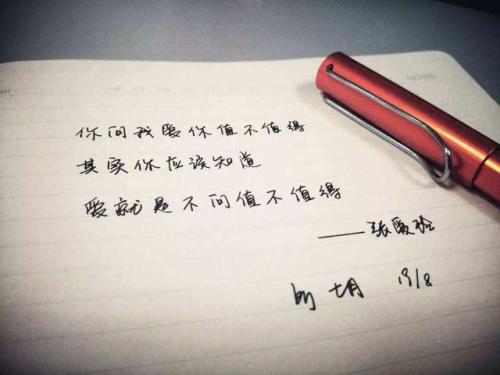 你问我爱你值不值得
其实你应该知道
爱就是不问值不值得
——张爱玲
七月 19/8